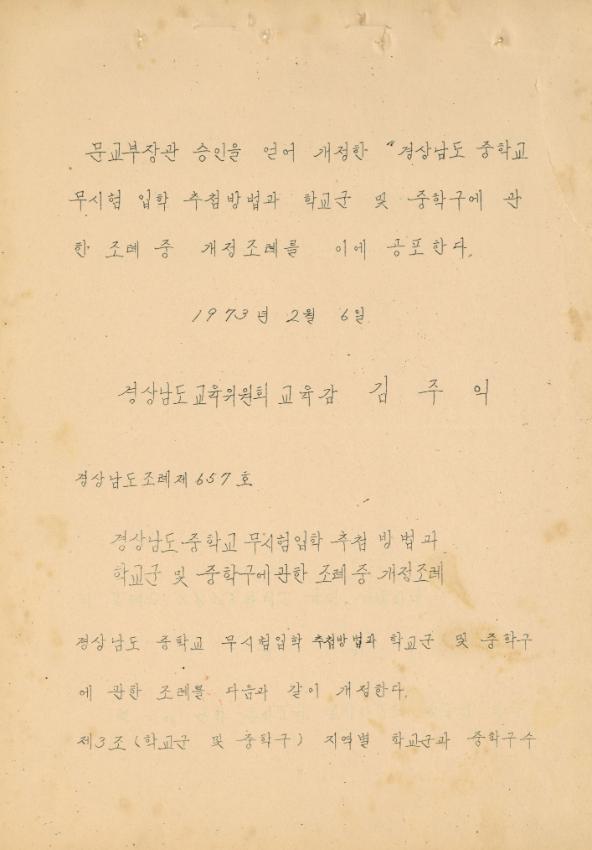 문교부장관 승인을 얻어 개정한 "경상남도 중학교
무시험 입학 추첨방법과 학교군 및 중학구에 관
한 조례 중 개정조례를 이에 공포한다.
1973년 2월 6일
경상남도교육위원회 교육감 김주익
경상남도조례제657호
경상남도 중학교 무시험입학 추첨 방법과
학교군 및 중학구에관한 조례중 개정조례
경상남도 중학교 무시험입학 추첨방법과 학교군 및 중학구
에 관한 조례를 다음과 같이 개정한다.
제3조(학교군 및 중학구) 지역별 학교군과 중학구수